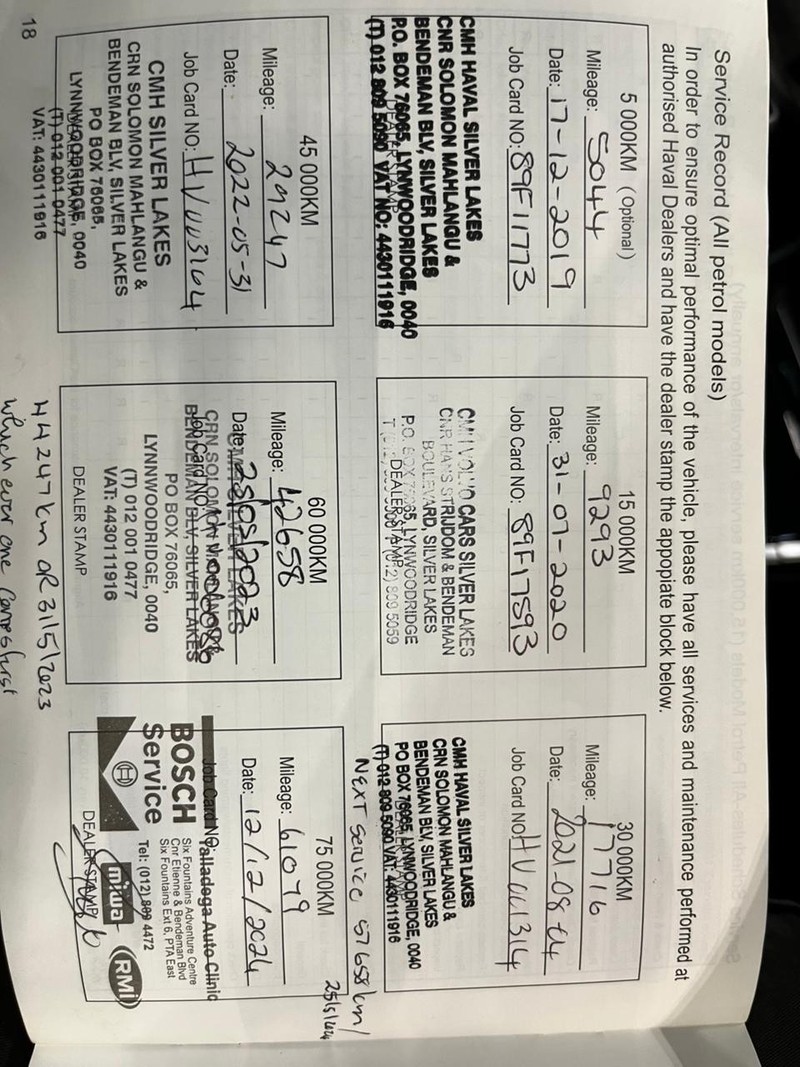 Service Record (All petrol models)
In order to ensure optimal performance of the vehicle, please have all services and maintenance performed at
authorised Haval Dealers and have the dealer stamp the appopiate block below.
5 000KM (Optional)
Mileage: 5044
Date: 17-12-2019
Job Card NO: 89F11773
CMH HAVAL SILVER LAKES
CNR SOLOMON MAHLANGU &
BENDEMAN BLV, SILVER LAKES
P.O. BOX 76065, LYNWOODRIDGE, 0040
(T) 012 809 5090 VAT NO: 4430111916
15 000KM
Mileage: 9293
Date: 31-07-2020
Job Card NO: 89F17593
CMH VOLVO CARS SILVER LAKES
CNR HANS STRIJDOM & BENDEMAN
BOULEVARD, SILVER LAKES
P.O. BOX 76065, LYNWOODRIDGE
DEALER STAMP
30 000KM
Mileage: 17716
Date: 2021-08-04
Job Card NO: HV001314
CMH HAVAL SILVER LAKES
CRN SOLOMON MAHLANGU &
BENDEMAN BLV, SILVER LAKES
PO BOX 76065, LYNWOODRIDGE, 0040
(T) 012 809 5090 VAT: 4430111916
NEXT Service 57658km/
25/5/2024
45 000KM
Mileage: 29247
Date: 2022-05-31
Job Card NO: HV003164
CMH SILVER LAKES
CRN SOLOMON MAHLANGU &
BENDEMAN BLV, SILVER LAKES
PO BOX 76065,
LYNNWOODRIDGE, 0040
(T) 012 001 0477
VAT: 4430111916
60 000KM
Mileage: 42658
Date:
Job Card NO:
CRN SOLOMON
BENDEMAN BLV, SILVER LAKES
PO BOX 76065,
LYNNWOODRIDGE, 0040
(T) 012 001 0477
VAT: 4430111916
DEALER STAMP
75 000KM
Mileage: 61079
Date: 12/12/2024
Job Card NO:
Talladega Auto Clinic
BOSCH
Service
Six Fountains Adventure Centre
Cnr Etienne & Bendeman Blvd
Six Fountains Ext 6, PTA East
Tel: (012) 809 4472
miwa
RMI
DEALER STAMP
44247km OR 31/5/2023
which ever one comes first
18